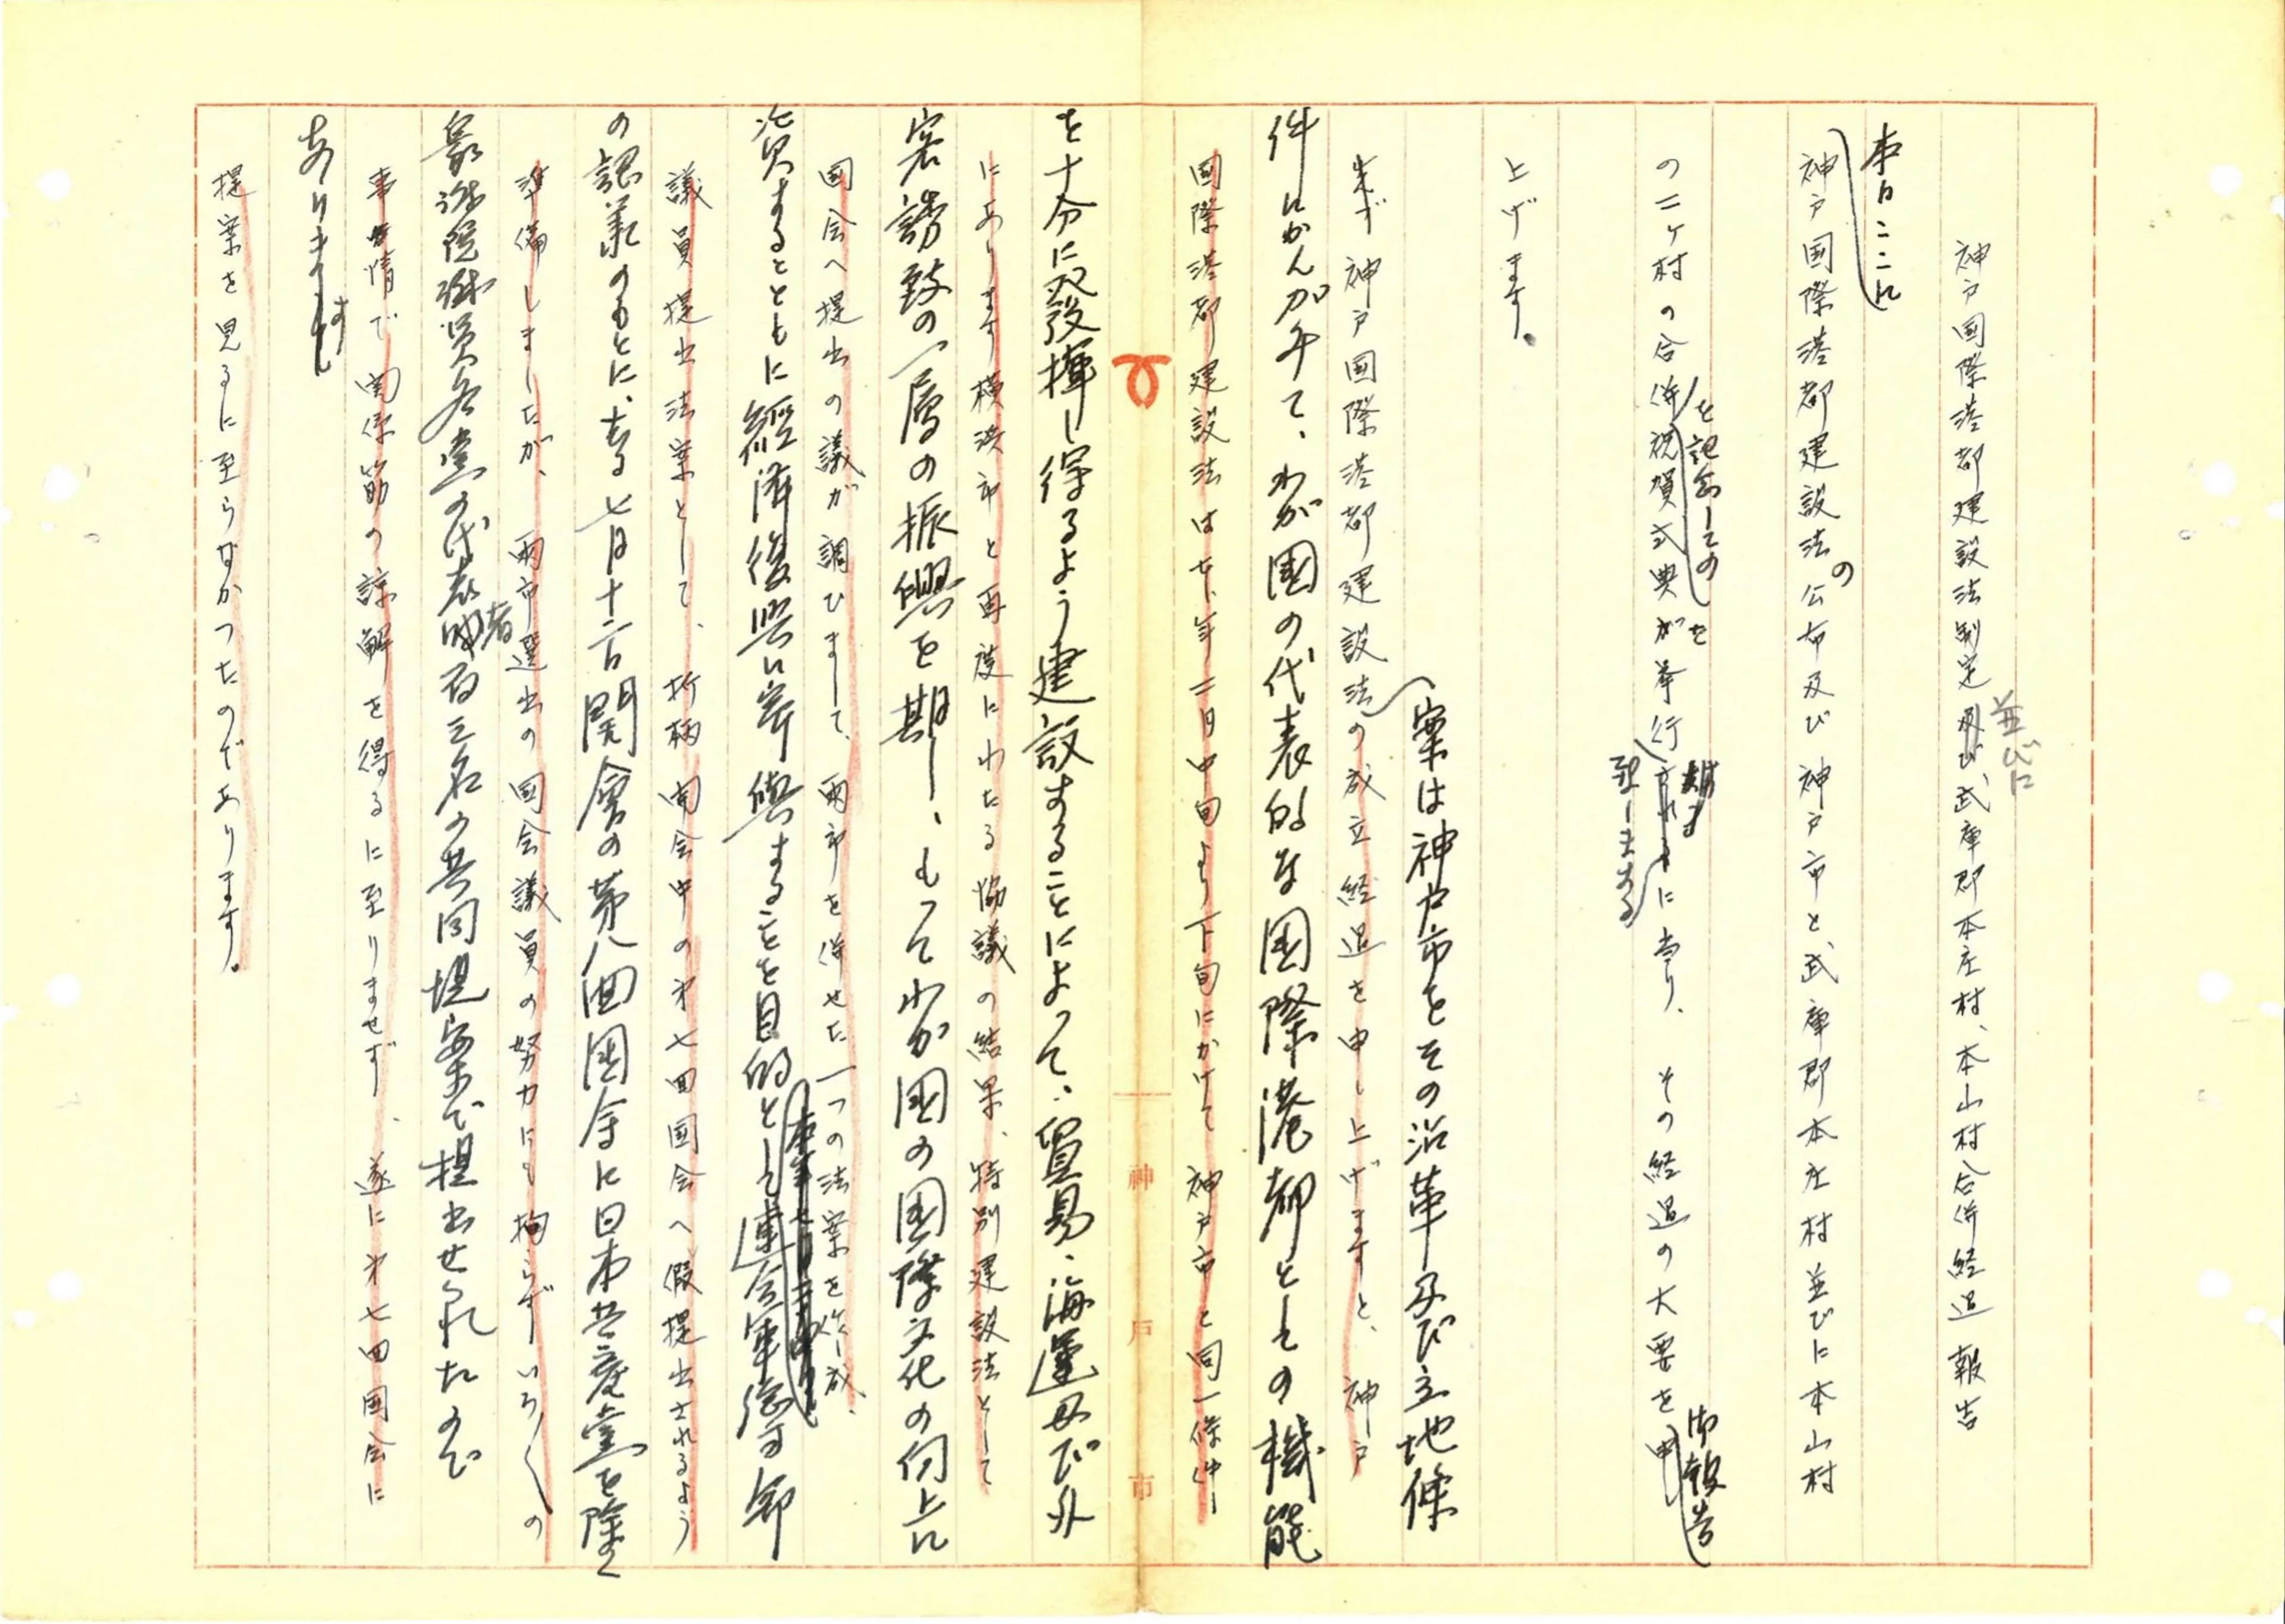 神戸国際港都建設法制定及び武庫郡本庄村、本山村合併経過報告
並びに
本日ここに
神戸国際港都建設法の公布及び神戸市と武庫郡本庄村並びに本山村
を記念しての
の二ヶ村の合併祝賀式典がを挙行されますに当り、その経過の大要を申
致しまする
御報告
上げます。
案は神戸市をその沿革及び立地條
先づ神戸国際港都建設法の成立経過を申し上げますと、神戸
件にかんがみて、わが國の代表的な国際港都としての機能
国際港都建設法は本年二月中旬より下旬にかけて神戸市と同一條件
を十分に発揮し得るよう建設することによって、貿易、海運及び外
にあります横浜市と再度にわたる協議の結果、特別建設法として
客誘致の一層の振興を期し、もってわが國の国際文化の向上に
国会へ提出の議が調ひまして、両市を併せた一つの法案を作成、
資するとともに経済復興に寄與することを目的とし連合軍総司令部
議員提出法案として、折柄開会中の第七回国会へ假提出されるよう
の認可のもとに、去る七月十二日開會の第八回國会に日本共産党を除く
準備しましたが、両市選出の国会議員の努力にも拘らずいろ〱の
衆議院議員各党の代表者
三名の共同提案で提出せられたので
事情で関係筋の諒解を得るに至りませず、遂に第七回国会に
ありますし
提案を見るに至らなかつたのであります。
神戸市